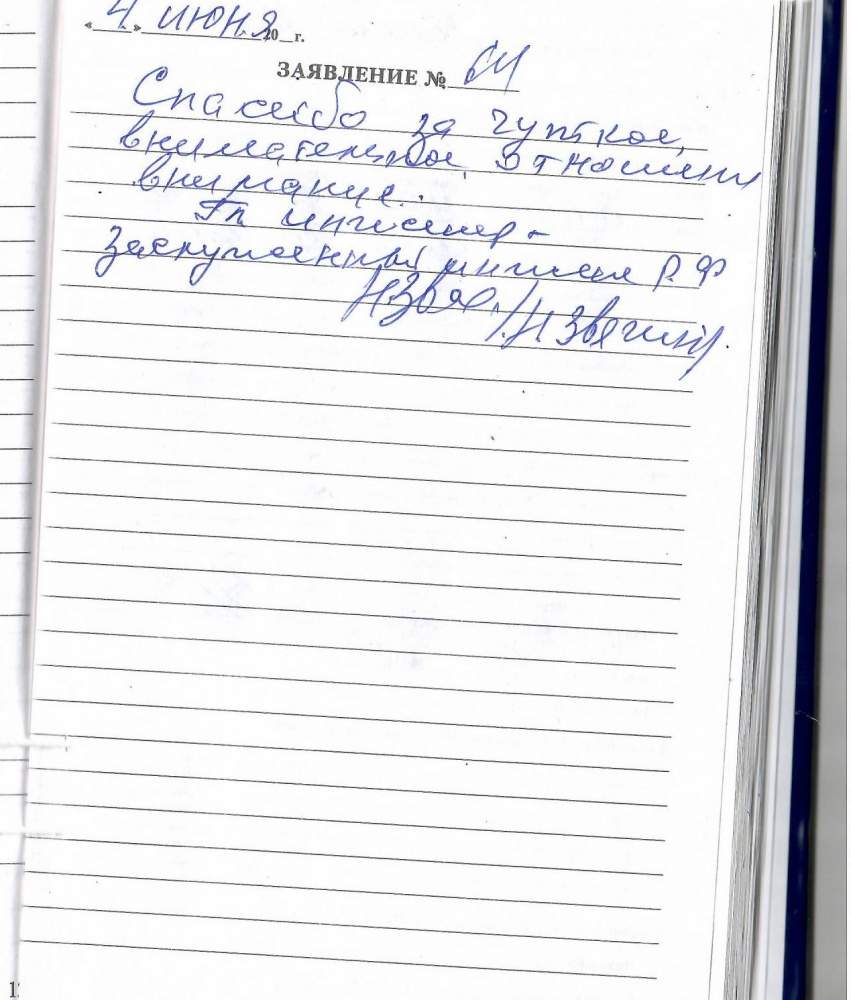 « 4 » июня 20 г.
ЗАЯВЛЕНИЕ №
Спасибо за чуткое,
внимательное, отношения
внимание.
Гл инженер -
Заслуженный инженер Р.Ф